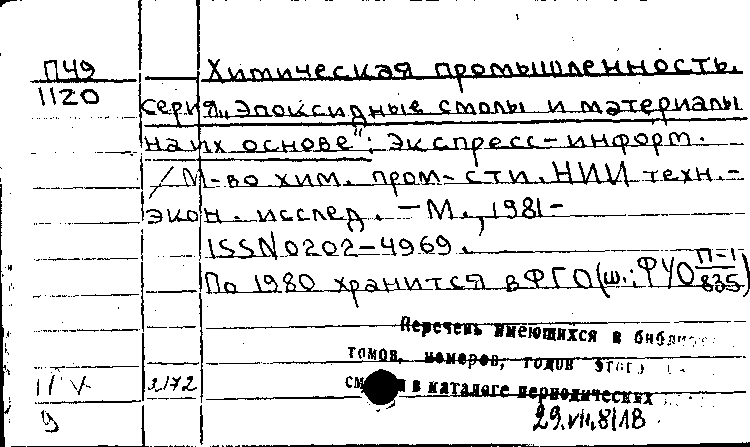 П49 Химическая промышленность.
1120 серия „Эпоксидные смолы и материалы
на их основе“: Экспресс-информ.
/М-во хим. пром-сти. НИИ техн.-
экон. исслед. - М., 1981-
ISSN 0202-4969.
По 1980 хранится в ФГО (ш.: ФУО П-1/835)
Перечень имеющихся в
томов, номеров, годов
в каталоге периодических
2172
29.VII.81